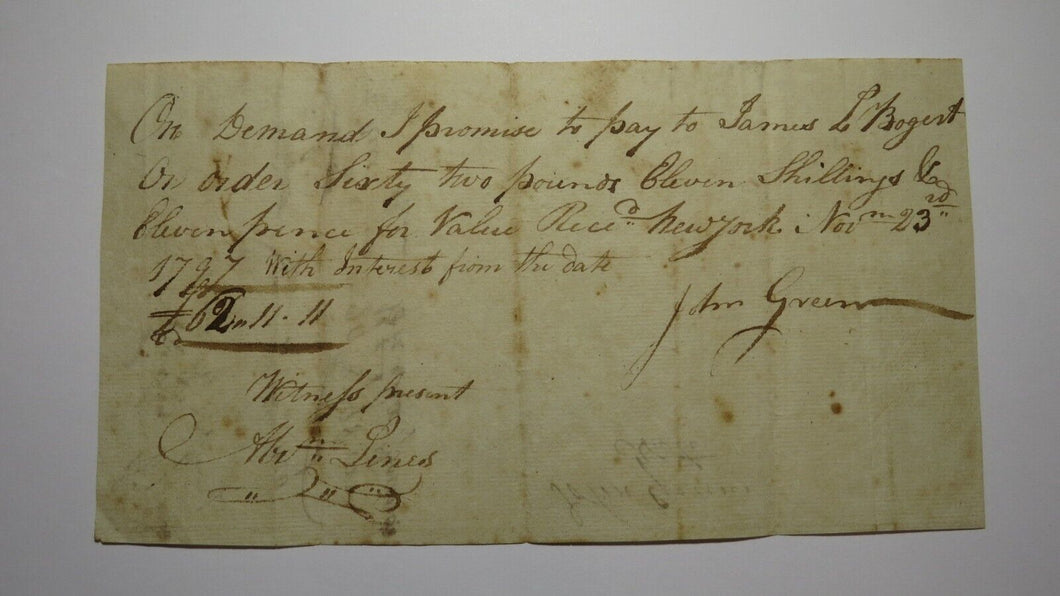 On Demand I promise to pay to James L Bogert
Or order Sixty two pounds Eleven Shillings &
Eleven pence for Value Rece^d New York Nov^m 23^rd
1797 With Interest from the date
£62 „ 11 - 11
John Green
Witness present
Abr^m Lines
John Green